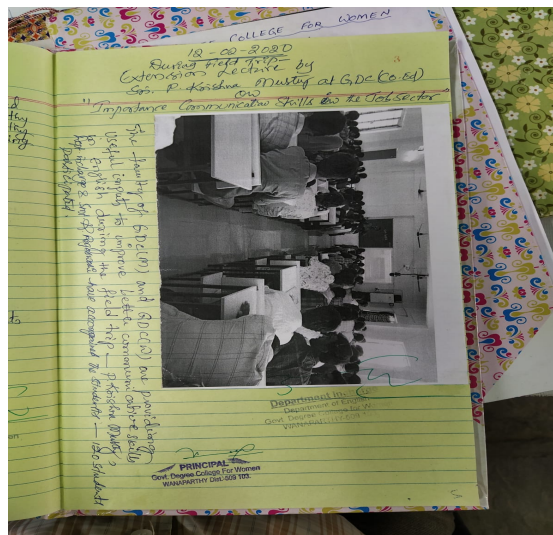 COLLEGE FOR WOMEN
12-02-2020
During Field Trip
Extension Lecture by
Sri. P. Krishna Murthy at GDC(Co.Ed)
on
"Importance Communicative Skills in the Job Sector"
The faculty of GDC(M) and GDC(W) are providing
useful inputs to improve better communicative skills
in English during the field trip - P Krishna Murthy,
have accompanied the students - 120 students
Department
Department of English
Govt. Degree College for W
WANAPARTHY
PRINCIPAL
Govt. Degree College For Women
WANAPARTHY Dist.-509 103.